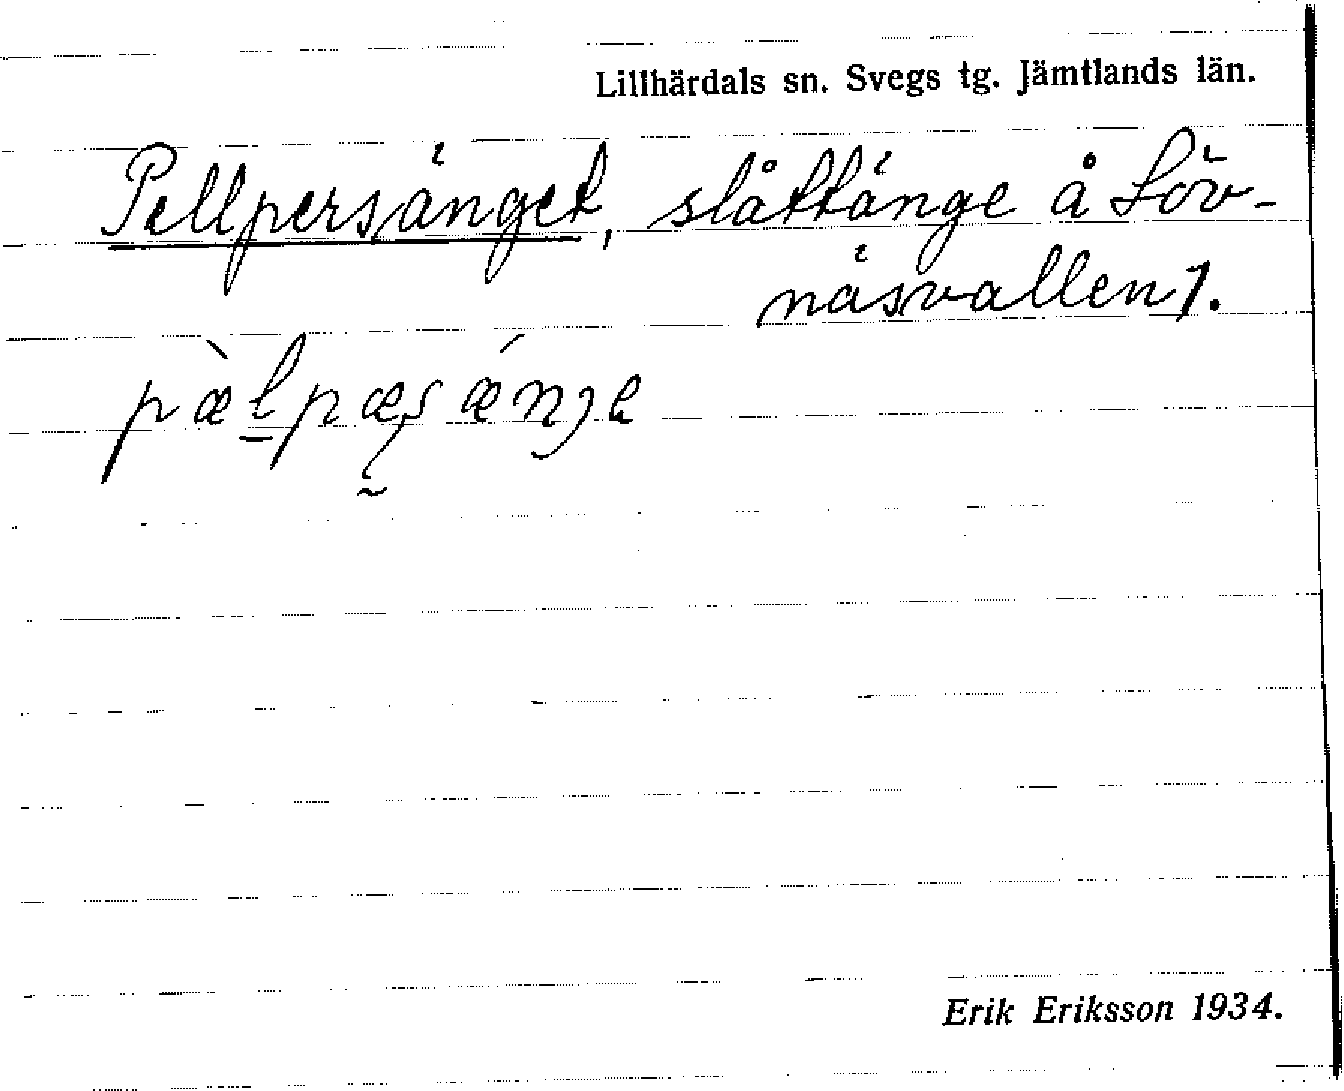 Lillhärdals sn. Svegs tg. Jämtlands län.
Pellpersänget, slåttänge å Löv-
näsvallen 1.
pæ̀l̠pæʂǽnʒe
Erik Eriksson 1934.